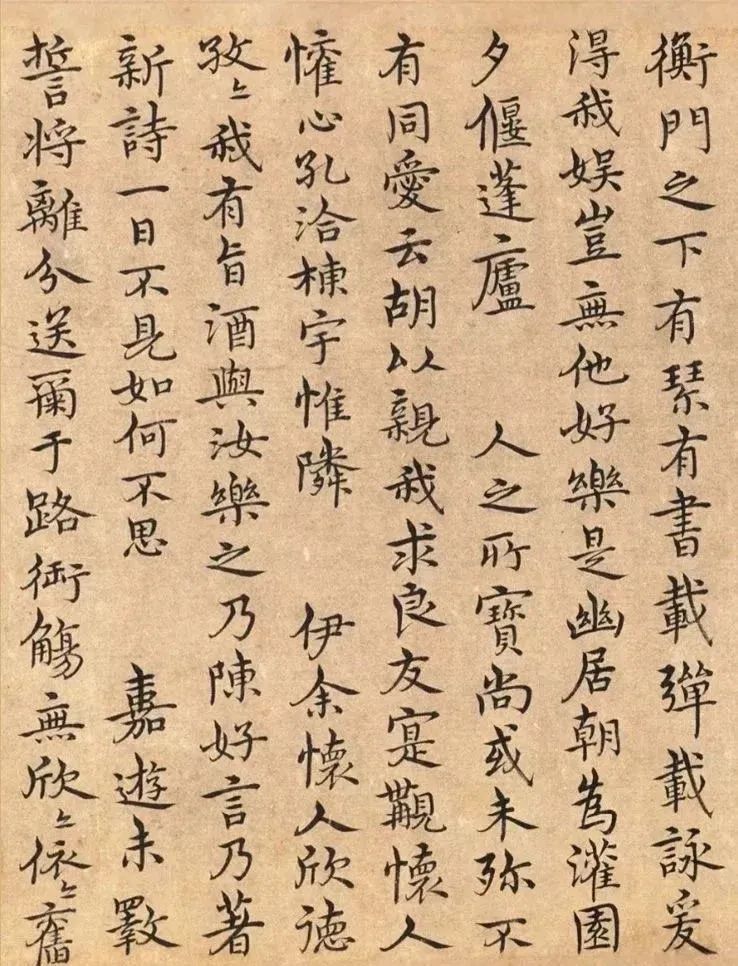 衡門之下有琴有書載彈載詠爰
得我娱豈無他好樂是幽居朝為灌園
夕偃蓬廬　人之所寶尚或未弥不
有同愛云胡以親我求良友寔覯懷人
懽心孔洽棟宇惟隣　伊余懷人欣德
孜〻我有旨酒與汝樂之乃陳好言乃著
新詩一日不見如何不思　嘉遊未斁
誓将離分送爾于路銜觴無欣〻依〻舊